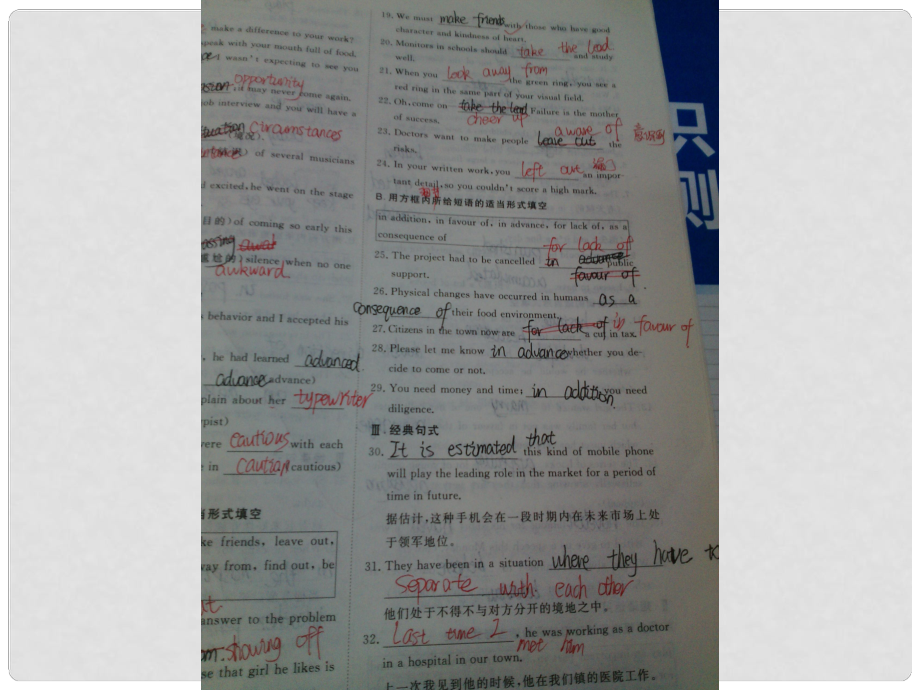 make a difference to your work?
speak with your mouth full of food.
I wasn't expecting to see you
opportunity
, it may never come again.
job interview and you will have a
circumstances
) of several musicians
f excited, he went on the stage
目的) of coming so early this
尴尬的) silence when no one
awkward
behavior and I accepted his
, he had learned advanced
advance advance)
plain about her typewriter
pist)
were cautious with each
e in caution (cautious)
当形式填空
ke friends, leave out,
way from, find out, be
answer to the problem
showing off
se that girl he likes is
19. We must make friends with those who have good
character and kindness of heart.
20. Monitors in schools should take the lead and study
well.
21. When you look away from the green ring, you see a
red ring in the same part of your visual field.
22. Oh, come on take the lead Failure is the mother
cheer up
of success.
aware of 意识到
23. Doctors want to make people leave out the
risks.
24. In your written work, you left out an impor-
tant detail, so you couldn't score a high mark.
B. 用方框内所给短语的适当形式填空
in addition, in favour of, in advance, for lack of, as a
consequence of
for lack of
25. The project had to be cancelled in advance public
favour of
support.
26. Physical changes have occurred in humans as a
consequence of their food environment.
27. Citizens in the town now are for lack of a cut in tax. in favour of
28. Please let me know in advance whether you de-
cide to come or not.
29. You need money and time; in addition, you need
diligence.
Ⅲ. 经典句式
30. It is estimated that this kind of mobile phone
will play the leading role in the market for a period of
time in future.
据估计,这种手机会在一段时期内在未来市场上处
于领军地位。
31. They have been in a situation where they have to
separate with each other
他们处于不得不与对方分开的境地之中。
32. Last time I met him, he was working as a doctor
in a hospital in our town.
上一次我见到他的时候,他在我们镇的医院工作。